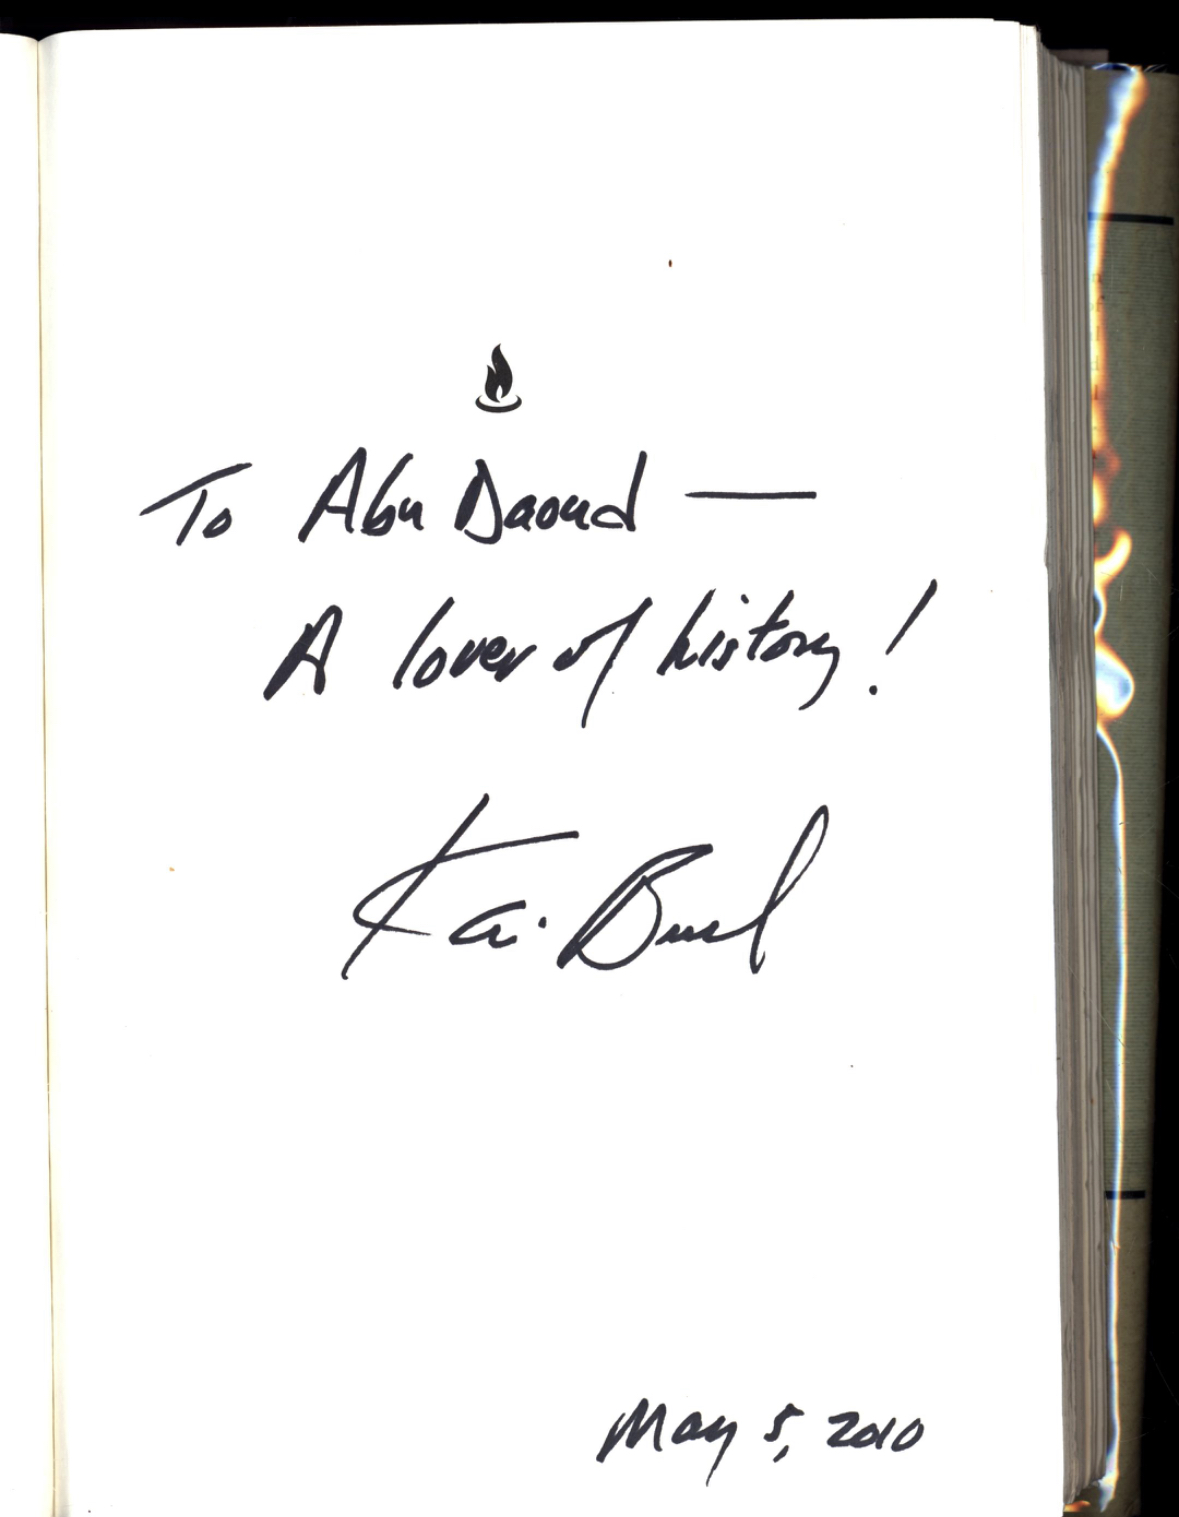 To Abu Daoud —
A lover of history!
Kai Bird
May 5, 2010